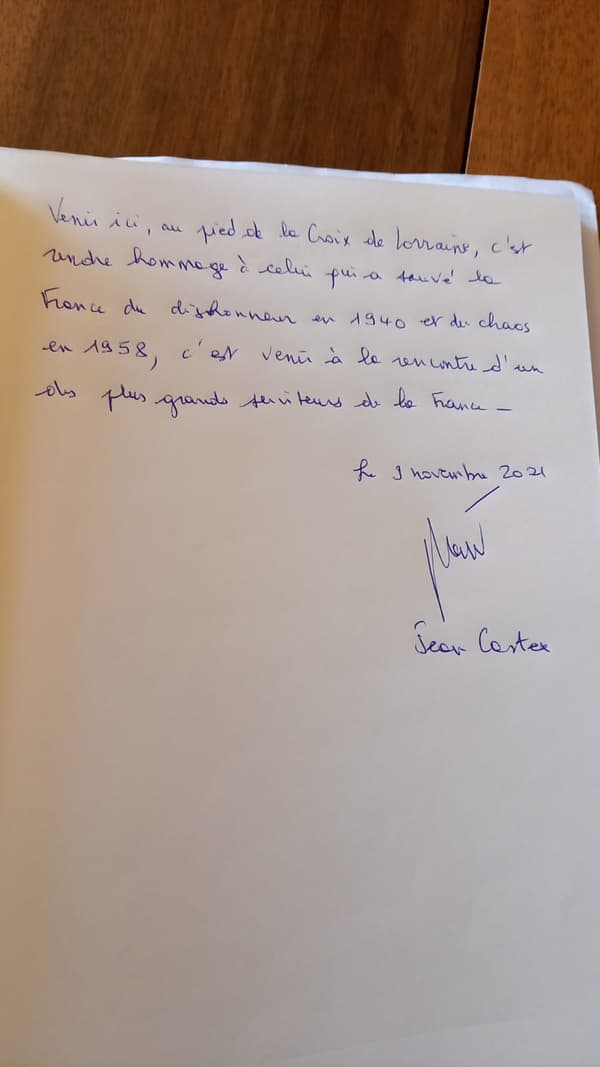 Venir ici, au pied de la Croix de Lorraine, c'est
rendre hommage à celui qui a sauvé la
France du dishonneur en 1940 et du chaos
en 1958, c'est venir à la rencontre d'un
des plus grands serviteurs de la France –
Le 9 novembre 2021
Jean Castex